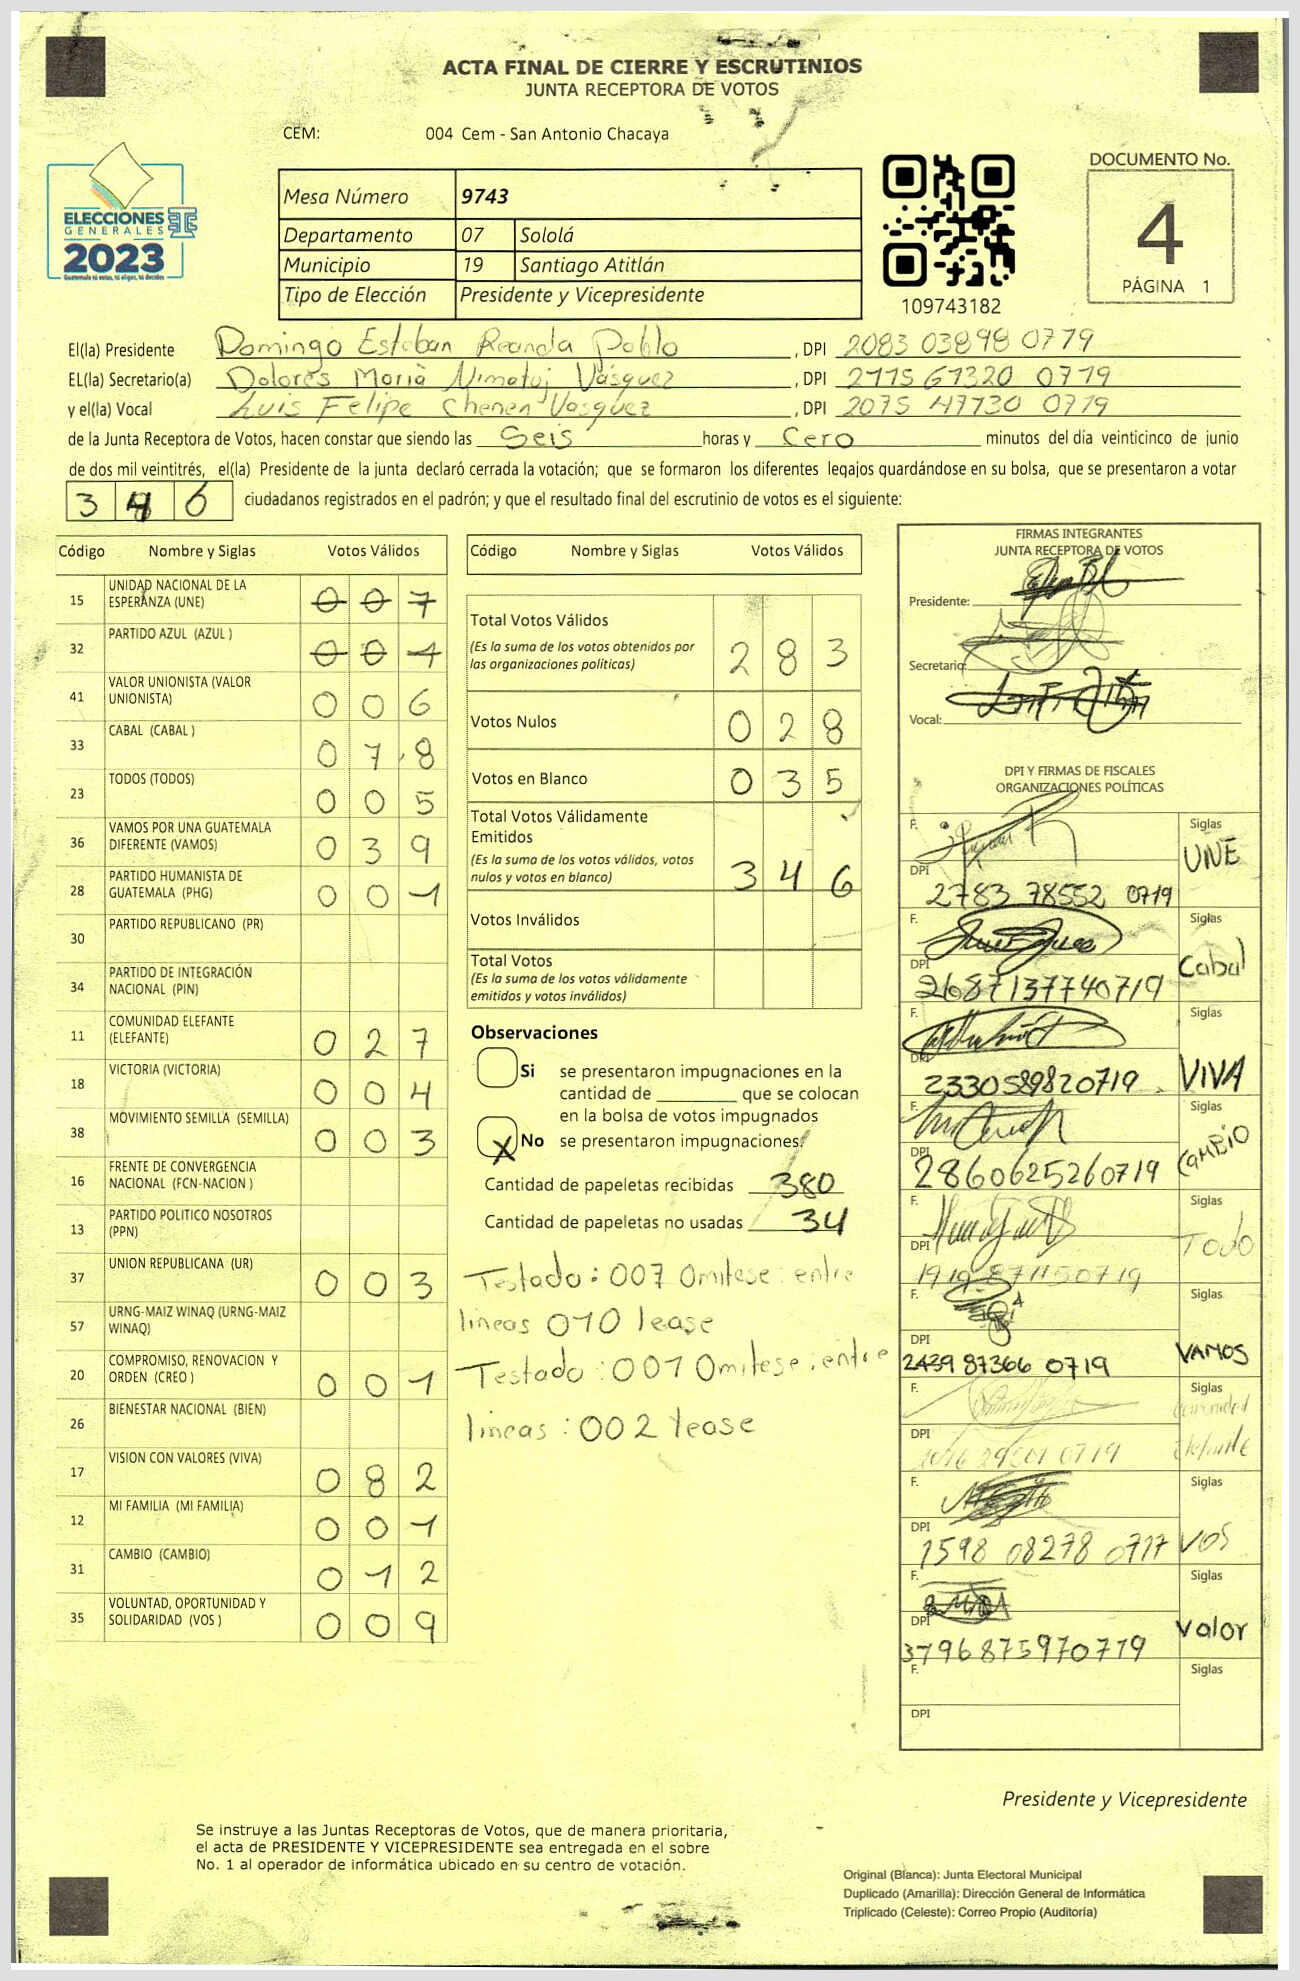 ACTA FINAL DE CIERRE Y ESCRUTINIOS
JUNTA RECEPTORA DE VOTOS
CEM: 004 Cem - San Antonio Chacaya
ELECCIONES
GENERALES
2023
Guatemala tú votas, tú eliges, tú decides
Mesa Número 9743
Departamento 07 Sololá
Municipio 19 Santiago Atitlán
Tipo de Elección Presidente y Vicepresidente
109743182
DOCUMENTO No.
4
PÁGINA 1
El(la) Presidente Domingo Esteban Reanda Pablo , DPI 2083 03898 0719
EL(la) Secretario(a) Dolores María Nimatuj Vásquez , DPI 2775 61320 0719
y el(la) Vocal Luis Felipe Chenen Vasquez , DPI 2075 47730 0719
de la Junta Receptora de Votos, hacen constar que siendo las Seis horas y Cero minutos del día veinticinco de junio
de dos mil veintitrés, el(la) Presidente de la junta declaró cerrada la votación; que se formaron los diferentes legajos guardándose en su bolsa, que se presentaron a votar
346 ciudadanos registrados en el padrón; y que el resultado final del escrutinio de votos es el siguiente:
Código Nombre y Siglas Votos Válidos
15 UNIDAD NACIONAL DE LA
ESPERANZA (UNE) 007
32 PARTIDO AZUL (AZUL ) 001
41 VALOR UNIONISTA (VALOR
UNIONISTA) 006
33 CABAL (CABAL ) 078
23 TODOS (TODOS) 005
36 VAMOS POR UNA GUATEMALA
DIFERENTE (VAMOS) 039
28 PARTIDO HUMANISTA DE
GUATEMALA (PHG) 001
30 PARTIDO REPUBLICANO (PR)
34 PARTIDO DE INTEGRACIÓN
NACIONAL (PIN)
11 COMUNIDAD ELEFANTE
(ELEFANTE) 027
18 VICTORIA (VICTORIA) 004
38 MOVIMIENTO SEMILLA (SEMILLA) 003
16 FRENTE DE CONVERGENCIA
NACIONAL (FCN-NACION )
13 PARTIDO POLITICO NOSOTROS
(PPN)
37 UNION REPUBLICANA (UR) 003
57 URNG-MAIZ WINAQ (URNG-MAIZ
WINAQ)
20 COMPROMISO, RENOVACION Y
ORDEN (CREO ) 001
26 BIENESTAR NACIONAL (BIEN)
17 VISION CON VALORES (VIVA) 082
12 MI FAMILIA (MI FAMILIA) 001
31 CAMBIO (CAMBIO) 012
35 VOLUNTAD, OPORTUNIDAD Y
SOLIDARIDAD (VOS ) 009
Código Nombre y Siglas Votos Válidos
Total Votos Válidos
(Es la suma de los votos obtenidos por
las organizaciones políticas) 283
Votos Nulos 028
Votos en Blanco 035
Total Votos Válidamente
Emitidos
(Es la suma de los votos válidos, votos
nulos y votos en blanco) 346
Votos Inválidos
Total Votos
(Es la suma de los votos válidamente
emitidos y votos inválidos)
Observaciones
Si se presentaron impugnaciones en la
cantidad de ________ que se colocan
en la bolsa de votos impugnados
X No se presentaron impugnaciones.
Cantidad de papeletas recibidas 380
Cantidad de papeletas no usadas 34
Testado: 007 Omitese: entre
lineas 010 lease
Testado: 001 Omitese: entre
lineas: 002 lease
FIRMAS INTEGRANTES
JUNTA RECEPTORA DE VOTOS
Presidente:
Secretario:
Vocal:
DPI Y FIRMAS DE FISCALES
ORGANIZACIONES POLÍTICAS
F. Siglas
UNE
DPI
2783 78552 0719
F. Siglas
Cabal
DPI
2687137740719
F. Siglas
DPI
2330589820719 VIVA
F. Siglas
CAMBIO
DPI
2860625260719
F. Siglas
Todo
DPI
F. Siglas
DPI
2439 87366 0719 VAMOS
F. Siglas
Comunidad
DPI
Elefante
F. Siglas
DPI
1598 08278 0717 VOS
F. Siglas
DPI Valor
3796875970719
F. Siglas
DPI
Presidente y Vicepresidente
Se instruye a las Juntas Receptoras de Votos, que de manera prioritaria,
el acta de PRESIDENTE Y VICEPRESIDENTE sea entregada en el sobre
No. 1 al operador de informática ubicado en su centro de votación.
Original (Blanca): Junta Electoral Municipal
Duplicado (Amarilla): Dirección General de Informática
Triplicado (Celeste): Correo Propio (Auditoría)